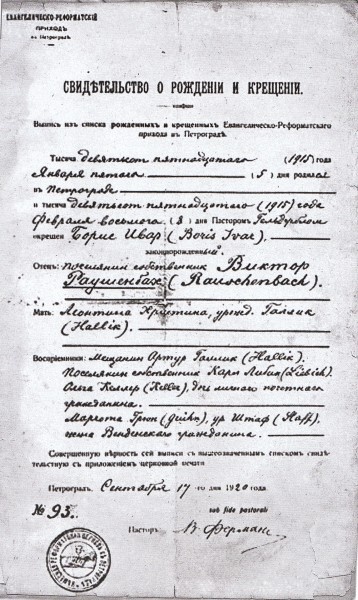 ЕВАНГЕЛИЧЕСКО-РЕФОРМАТСКІЙ
ПРИХОДЪ
въ Петроградѣ.
СВИДѢТЕЛЬСТВО О РОЖДЕНІИ И КРЕЩЕНІИ.
Выпись изъ списка рожденныхъ и крещенныхъ Евангелическо-Реформатскаго
прихода въ Петроградѣ.
Тысяча девятьсот пятнадцатаго (1915) года
Января пятаго (5) дня родился
въ Петрограде
и тысяча девятьсот пятнадцатаго (1915) года
Февраля восьмого (8) дня Пасторомъ
крещен Борис Ивар (Boris Ivar),
законнорожденный
Отецъ: поселянин собственник Виктор
Раушенбах (Rauschenbach).
Мать: Леонтина Кристина, урожд. Галлик
(Hallik).
Воспріемники: Мещанин Артур Галлик (Hallik).
Поселянин собственник Карл Либих (Liebich).
Ольга Келлер (Keller), дчь личнаго почетнаго
гражданина.
Маргота Грюн, ур. Штаф (Staff),
жена Венденского гражданина.
Совершенную вѣрность сей выписи съ вышеозначеннымъ спискомъ свидѣ-
тельствую съ приложеніемъ церковной печати
Петроградъ, Сентября 17-го дня 1920 года.
№ 93.
sub fide pastorali
Пасторъ: